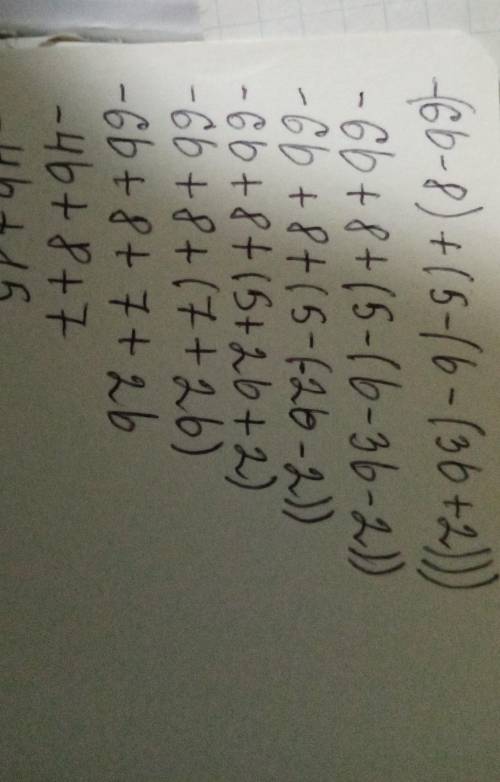 -(6b-8)+(5-(b-(3b+2)))
-6b+8+(5-(b-3b-2))
-6b+8+(5-(-2b-2))
-6b+8+(5+2b+2)
-6b+8+(7+2b)
-6b+8+7+2b
-4b+8+7
-4b+15